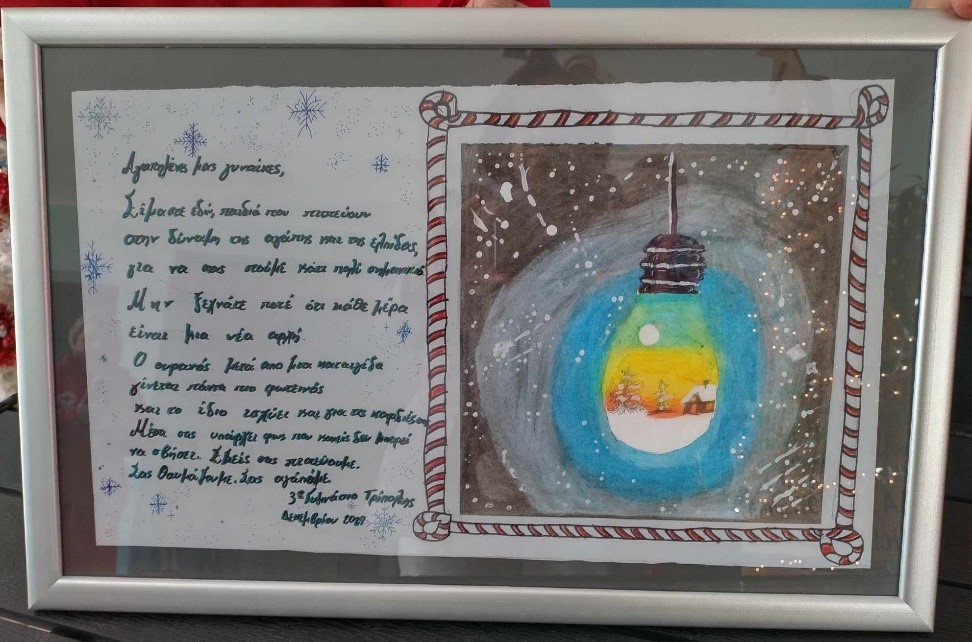 Αγαπημένες μας γυναίκες,
Είμαστε εδώ, παιδιά που πιστεύουν
στην δύναμη της αγάπης και της ελπίδας,
για να σας πούμε κάτι πολύ σημαντικό
Μην ξεχνάτε ποτέ ότι κάθε μέρα
είναι μια νέα αρχή.
Ο ουρανός μετά από μια καταιγίδα
γίνεται πάντα πιο φωτεινός
και το ίδιο ισχύει και για τις καρδιές σας
Μέσα σας υπάρχει φως που κανείς δεν μπορεί
να σβήσει. Εμείς σας πιστεύουμε.
Σας θαυμάζουμε. Σας αγαπάμε
3ο Γυμνάσιο Τρίπολης
Δεκεμβρίου